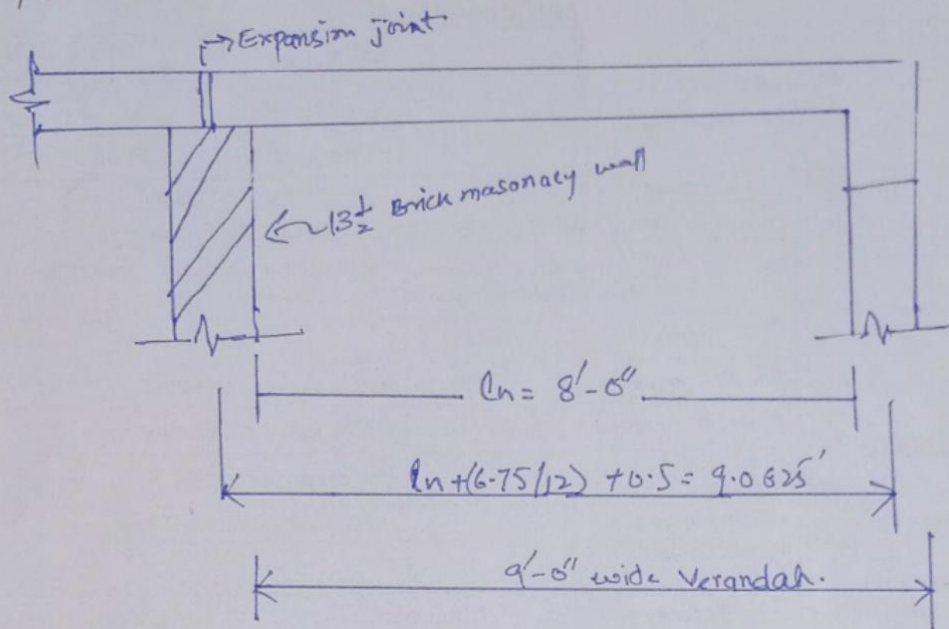 Expansion joint
13 1/2 Brick masonacy wall
ln = 8'-0"
ln+(6.75/12) +0.5= 9.0625'
9'-0" wide Verandah.